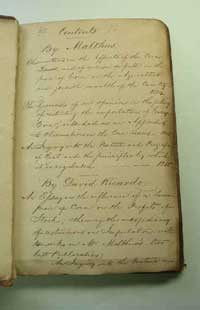 Contents
By Malthus
Observations on the Effects of the Corn
Laws, and of a rise or fall in the
price of Corn on the agriculture
and general wealth of the Country
The Grounds of an opinion on the policy
of restricting the importation of foreign
Corn, intended as an appendix
to Observations on the Corn laws
An Inquiry into the Nature and Progress
of Rent and the principles by which
it is regulated 1815
By David Ricardo
An Essay on the influence of a low
price of Corn on the Profits of
Stock; shewing the inexpediency
of restrictions on Importation with
remarks on Mr Malthus' two
last Publications